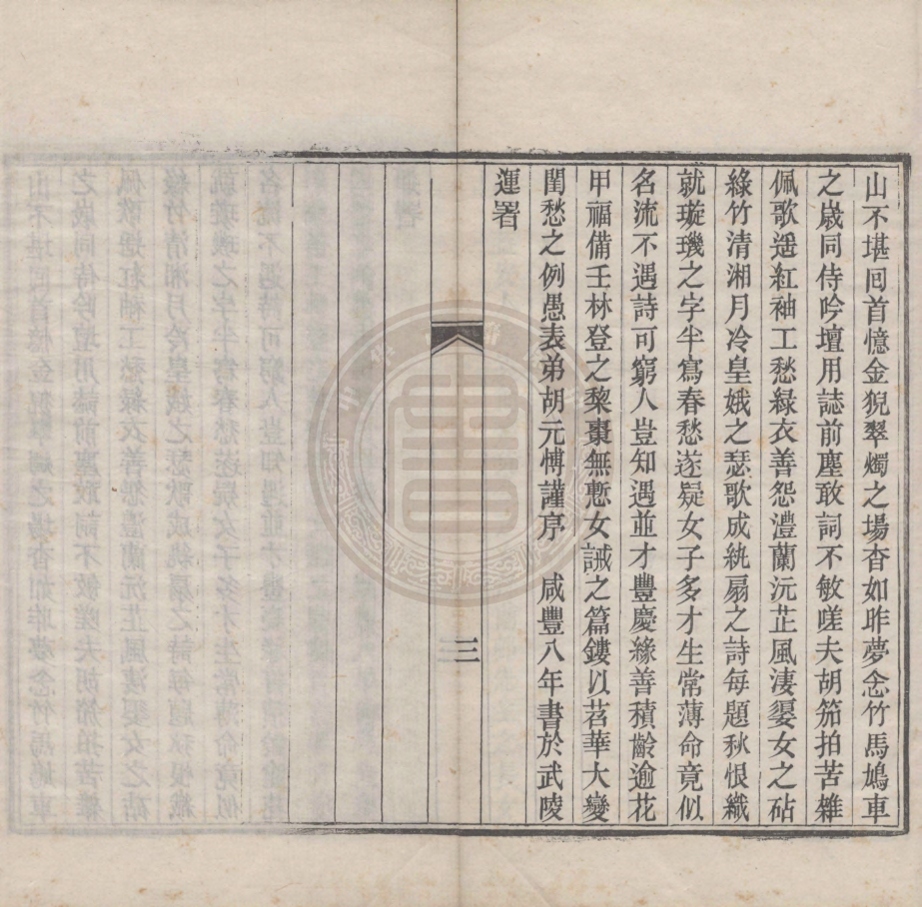 山不堪囘首憶金猊翠燭之場杳如昨夢念竹馬鳩車
之歲同侍吟壇用誌前塵敢詞不敏嗟夫胡笳拍苦雜
佩歌遥紅袖工愁綠衣善怨澧蘭沅芷風淒婜女之砧
綠竹清湘月冷皇娥之瑟歌成紈扇之詩每題秋恨織
就璇璣之字半寫春愁遂疑女子多才生常薄命竟似
名流不遇詩可窮人豈知遇並才豐慶緣善積齡逾花
甲福備壬林登之棃棗無慙女誡之篇鏤以苕華大變
閨愁之例愚表弟胡元愽謹序　咸豐八年書於武陵
運署
三